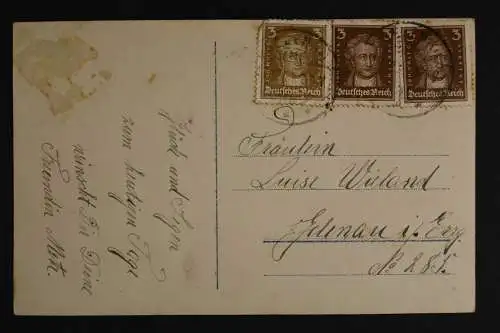 3 3 3
Deutsches Reich Deutsches Reich Deutsches Reich
Glück und Segen
zum heutigen Tage
wünscht Dir Deine
Freundin
Fräulein
Luise Wieland
i. Erzg.
No 28